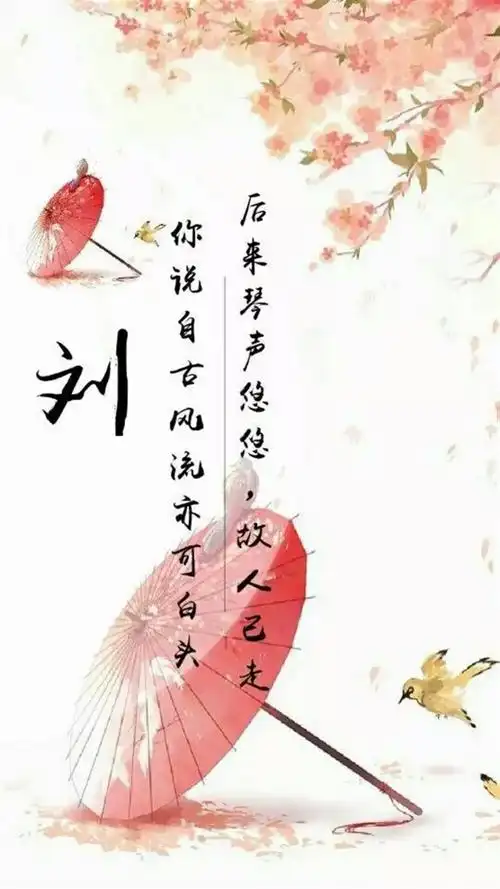 后来琴声悠悠，故人已走
你说自古风流亦可白头
刘